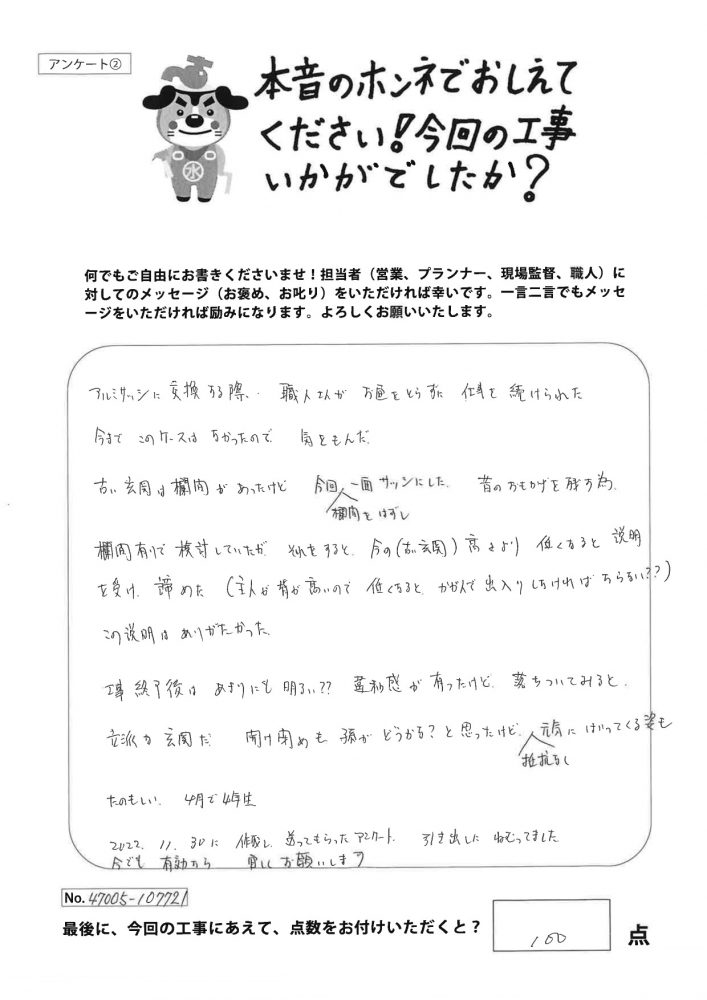 アンケート②
本音のホンネでおしえて
ください!今回の工事
いかがでしたか?
水
何でもご自由にお書きくださいませ!担当者(営業、プランナー、現場監督、職人)に
対してのメッセージ(お褒め、お叱り)をいただければ幸いです。一言二言でもメッセ
ージをいただければ励みになります。よろしくお願いいたします。
アルミサッシに交換する際、職人さんがお昼をとらずに仕事を続けられた
今までこのケースはなかったので 気をもんだ
古い玄関は欄間があったけど 今回、一面サッシにした。昔のおもかげを残す為、
欄間をはずし
欄間有りで検討していたが、それをすると、今の(古い玄関)高さより 低くなると説明
を受け、諦めた (主人が背が高いので 低くなると、かがんで出入りしなければならない??)
この説明はありがたかった。
工事終了後は あまりにも明るい?? 違和感が有ったけど、落ちついてみると、
立派な玄関だ 開け閉めも孫がどうかな?と思ったけど、元気にはいってくる姿も
抵抗なし
たのもしい。4月で4年生
2022.11.30に 作成し、送ってもらったアンケート、引き出しに ねむってました
今でも有効なら 宜しくお願いします
No.47005-107721
最後に、今回の工事にあえて、点数をお付けいただくと?
100 点